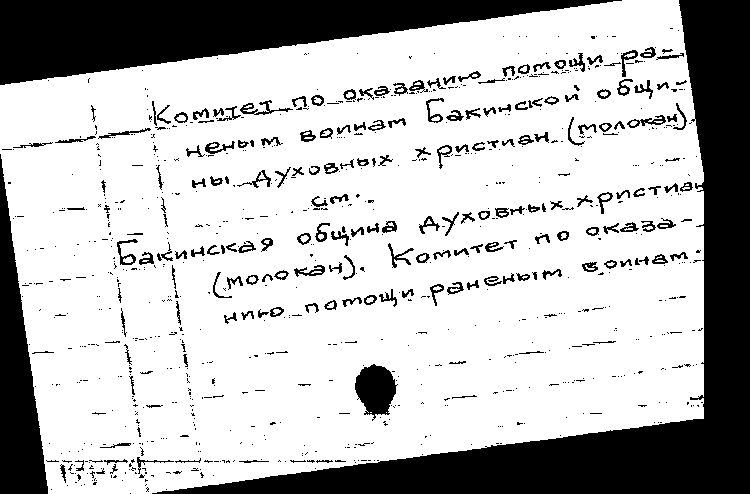 Комитет по оказанию помощи ра-
неным воинам Бакинской общи-
ны духовных христиан (молокан)
см.
Бакинская община духовных христиан
(молокан). Комитет по оказа-
нию помощи раненым воинам.